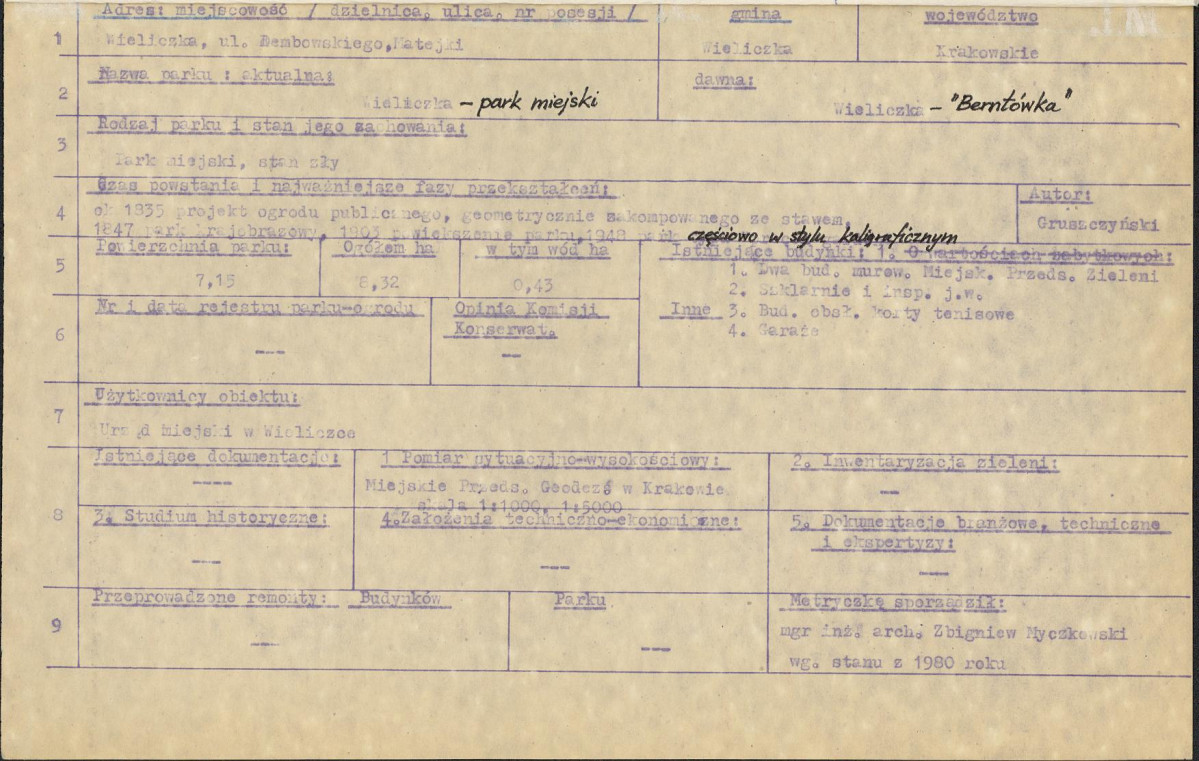 Adres: miejscowość / dzielnica, ulica, nr posesji /
gmina
województwo
1
Wieliczka, ul. Dembowskiego,Matejki
Wieliczka
Krakowskie
Nazwa parku : aktualna:
dawna:
2
Wieliczka – park miejski
Wieliczka – "Berntówka"
Rodzaj parku i stan jego zachowania:
3
Park miejski, stan zły
Czas powstania i najważniejsze fazy przekształceń:
Autor:
4
ok 1835 projekt ogrodu publicznego, geometrycznie zakompowanego ze stawem,
Gruszczyński
1847 park krajobrazowy, 1903 powiększenie parku,1948
częściowo w stylu kaligraficznym
Powierzchnia parku:
Ogółem ha
w tym wód ha
Istniejące budynki: 1. O wartościach zabytkowych:
5
7,15
8,32
0,43
1. Dwa bud. murow. Miejsk. Przeds. Zieleni
2. Szklarnie i insp. j.w.
Nr i data rejestru parku-ogrodu
Opinia Komisji
Konserwat.
Inne
3. Bud. obsł. korty tenisowe
4. Garaże
6
----
---
Użytkownicy obiektu:
7
Urząd miejski w Wieliczce
Istniejące dokumentacje:
1 Pomiar sytuacyjno-wysokościowy:
2. Inwentaryzacja zieleni:
----
Miejskie Przeds. Geodez. w Krakowie
---
skala 1:1000, 1:5000
8
3. Studium historyczne:
4.Założenia techniczno-ekonomiczne:
5. Dokumentacje branżowe, techniczne
i ekspertyzy:
----
----
----
Przeprowadzone remonty:
Budynków
Parku
Metryczkę sporządził:
9
----
----
mgr inż. arch. Zbigniew Myczkowski
wg. stanu z 1980 roku